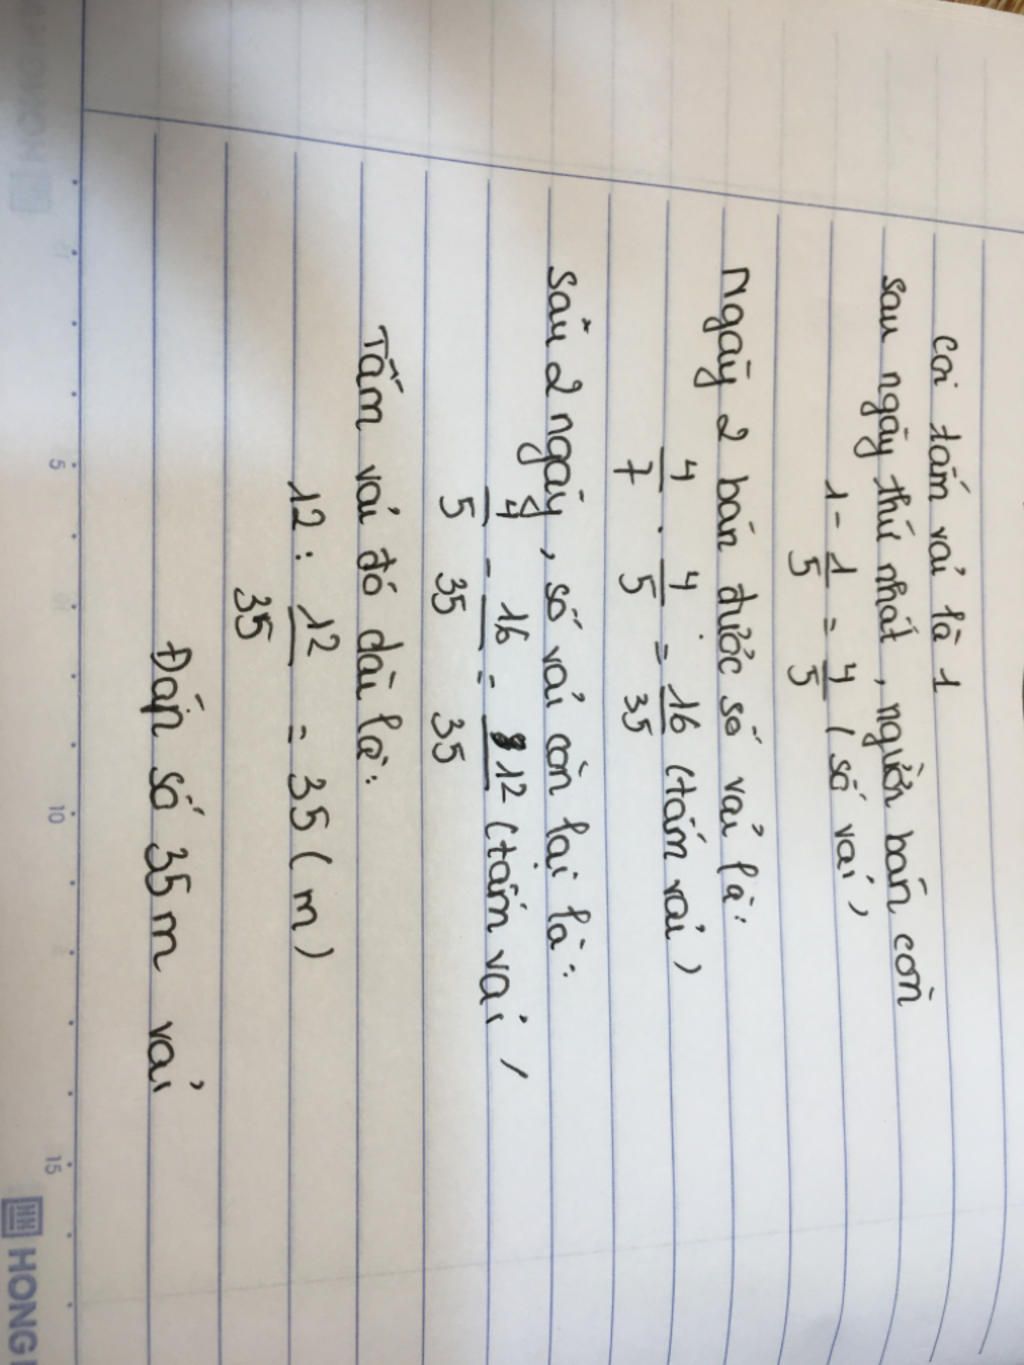 Coi tấm vải là 1
sau ngày thứ nhất, người bán còn
1 - 1/5 = 4/5 (số vải)
Ngày 2 bán được số vải là:
4/7 . 4/5 = 16/35 (tấm vải)
Sau 2 ngày, số vải còn lại là:
4/5 - 16/35 = 12/35 (tấm vải)
Tấm vải đó dài là:
12 : 12/35 = 35 (m)
Đáp số 35m vải
5 10 15
HONG